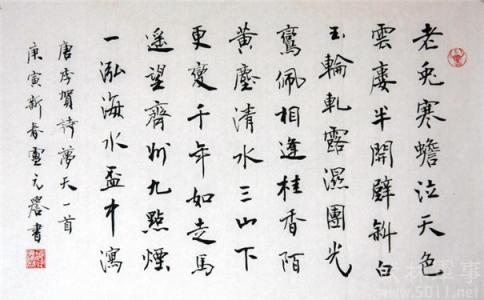 老兔寒蟾泣天色
雲廔半開壁斜白
玉輪軋露濕團光
鸞佩相逢桂香陌
黃塵清水三山下
更變千年如走馬
遙望齊州九點煙
一泓海水盃中瀉
唐李賀詩夢天一首
庚寅新春元書
www.5011.net